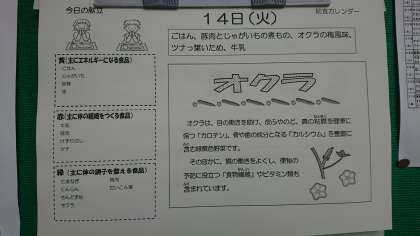 今日の献立
14日(火)
給食カレンダー
ごはん、豚肉とじゃがいもの煮もの、オクラの梅風味、
ツナっ葉いため、牛乳
黄(主にエネルギーになる食品)
ごはん
じゃがいも
赤(主に体の組織をつくる食品)
牛乳
豚肉
けずりぶし
ツナ
緑(主に体の調子を整える食品)
たまねぎ 梅肉
にんじん だいこん葉
さんどまめ
オクラ
オクラ
オクラは、目の働きを助け、皮ふやのど、鼻の粘膜を健康に
保つ「カロテン」、骨や歯の成分となる「カルシウム」を豊富に
含む緑黄色野菜です。
そのほかに、腸の働きをよくし、便秘の
予防に役立つ「食物繊維」やビタミン類も
含まれています。